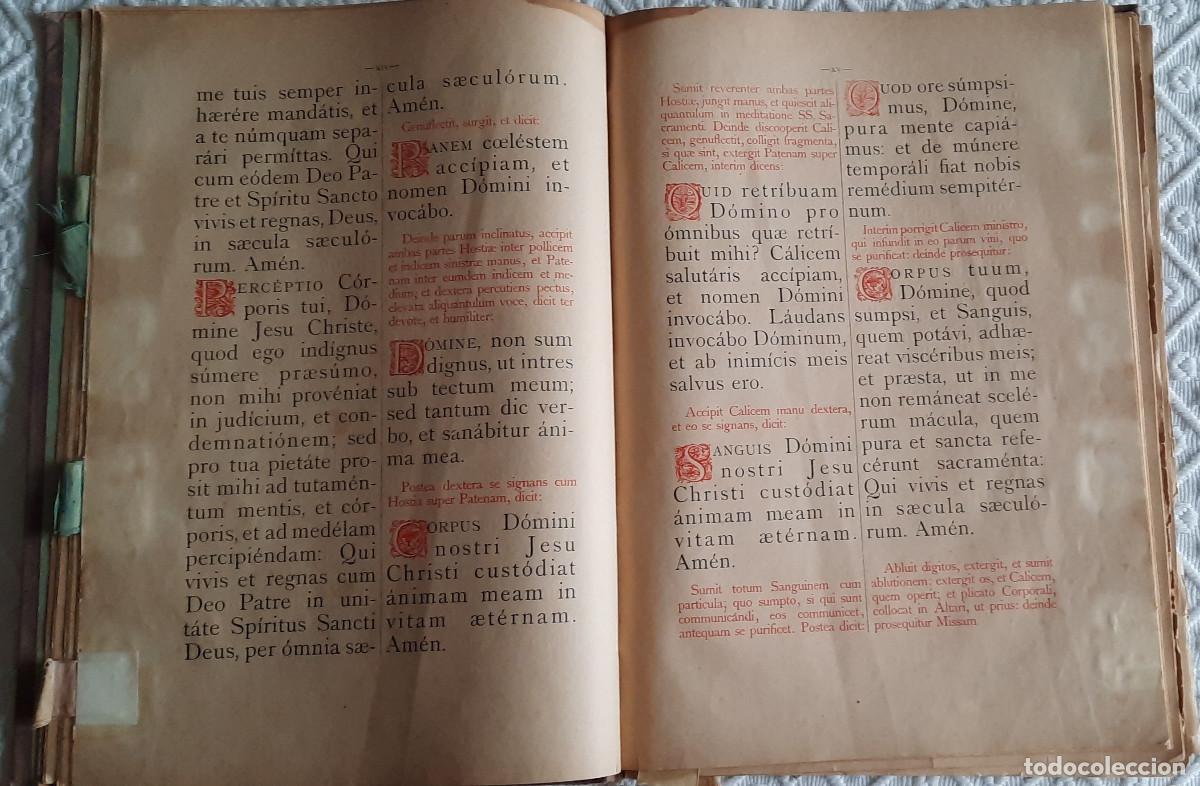 —xiv—
me tuis semper in-
hærére mandátis, et
a te númquam sepa-
rári permíttas. Qui
cum eódem Deo Pa-
tre et Spíritu Sancto
vivis et regnas, Deus,
in sæcula sæculó-
rum. Amén.
PERCÉPTIO Cór-
poris tui, Dó-
mine Jesu Christe,
quod ego indígnus
súmere præsúmo,
non mihi provéniat
in judícium, et con-
demnatiónem; sed
pro tua pietáte pro-
sit mihi ad tutamén-
tum mentis, et cór-
poris, et ad medélam
percipiéndam: Qui
vivis et regnas cum
Deo Patre in uni-
táte Spíritus Sancti
Deus, per ómnia sæ-
cula sæculórum.
Amén.
Genuflectit, surgit, et dicit:
PANEM cœléstem
accípiam, et
nomen Dómini in-
vocábo.
Deinde parum inclinatus, accipit
ambas partes Hostiæ inter pollicem
et indicem sinistræ manus, et Pate-
nam inter eumdem indicem et me-
dium, et dextera percutiens pectus,
elevata aliquantulum voce, dicit ter
devote, et humiliter:
DÓMINE, non sum
dignus, ut intres
sub tectum meum;
sed tantum dic ver-
bo, et sanábitur áni-
ma mea.
Postea dextera se signans cum
Hostia super Patenam, dicit:
CORPUS Dómini
nostri Jesu
Christi custódiat
ánimam meam in
vitam ætérnam.
Amén.
—xv—
Sumit reverenter ambas partes
Hostiæ, jungit manus, et quiescit ali-
quantulum in meditatione SS. Sa-
cramenti. Deinde discooperit Cali-
cem, genuflectit, colligit fragmenta,
si quæ sint, extergit Patenam super
Calicem, interim dicens:
QUID retríbuam
Dómino pro
ómnibus quæ retrí-
buit mihi? Cálicem
salutáris accípiam,
et nomen Dómini
invocábo. Láudans
invocábo Dóminum,
et ab inimícis meis
salvus ero.
Accipit Calicem manu dextera,
et eo se signans, dicit:
SANGUIS Dómini
nostri Jesu
Christi custódiat
ánimam meam in
vitam ætérnam.
Amén.
Sumit totum Sanguinem cum
particula; quo sumpto, si qui sunt
communicándi, eos communicet,
antequam se purificet. Postea dicit:
QUOD ore súmpsi-
mus, Dómine,
pura mente capiá-
mus: et de múnere
temporáli fiat nobis
remédium sempitér-
num.
Interim porrigit Calicem ministro,
qui infundit in eo parum vini, quo
se purificat: deinde prosequitur:
CORPUS tuum,
Dómine, quod
sumpsi, et Sanguis,
quem potávi, adhæ-
reat viscéribus meis;
et præsta, ut in me
non remáneat scelé-
rum mácula, quem
pura et sancta refe-
cérunt sacraménta:
Qui vivis et regnas
in sæcula sæculó-
rum. Amén.
Abluit digitos, extergit, et sumit
ablutionem: extergit os, et Calicem,
quem operit, et plicato Corporali,
collocat in Altari, ut prius: deinde
prosequitur Missam
todocoleccion